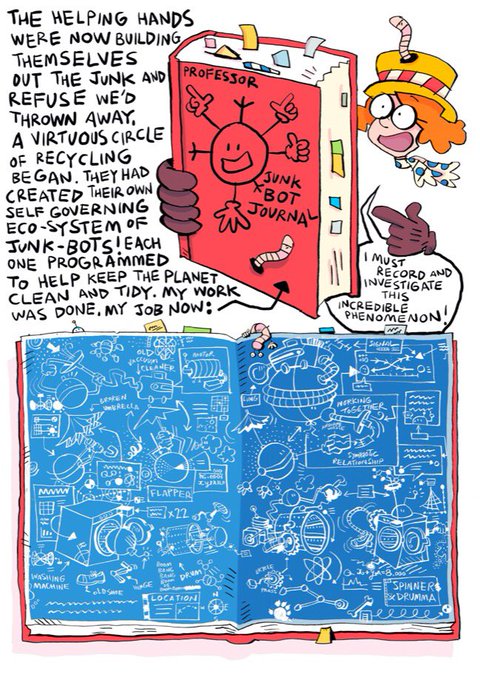 THE HELPING HANDS
WERE NOW BUILDING
THEMSELVES
OUT THE JUNK AND
REFUSE WE'D
THROWN AWAY.
A VIRTUOUS CIRCLE
OF RECYCLING
BEGAN. THEY HAD
CREATED THEIR OWN
SELF GOVERNING
ECO-SYSTEM OF
JUNK-BOTS! EACH
ONE PROGRAMMED
TO HELP KEEP THE PLANET
CLEAN AND TIDY. MY WORK
WAS DONE. MY JOB NOW:
PROFESSOR
JUNK
BOT
JOURNAL
I MUST
RECORD AND
INVESTIGATE
THIS
INCREDIBLE
PHENOMENON!
OLD
VACCUUM
CLEANER
MOTOR
BROKEN
UMBRELLA
FLAPPER
X22
WASHING
MACHINE
OLD SHOE
BOOM
BANG
DRUM
LOCATION
JOURNAL
WORKING
TOGETHER
SYMBIOTIC
RELATIONSHIP
SPINNER
DRUMMA